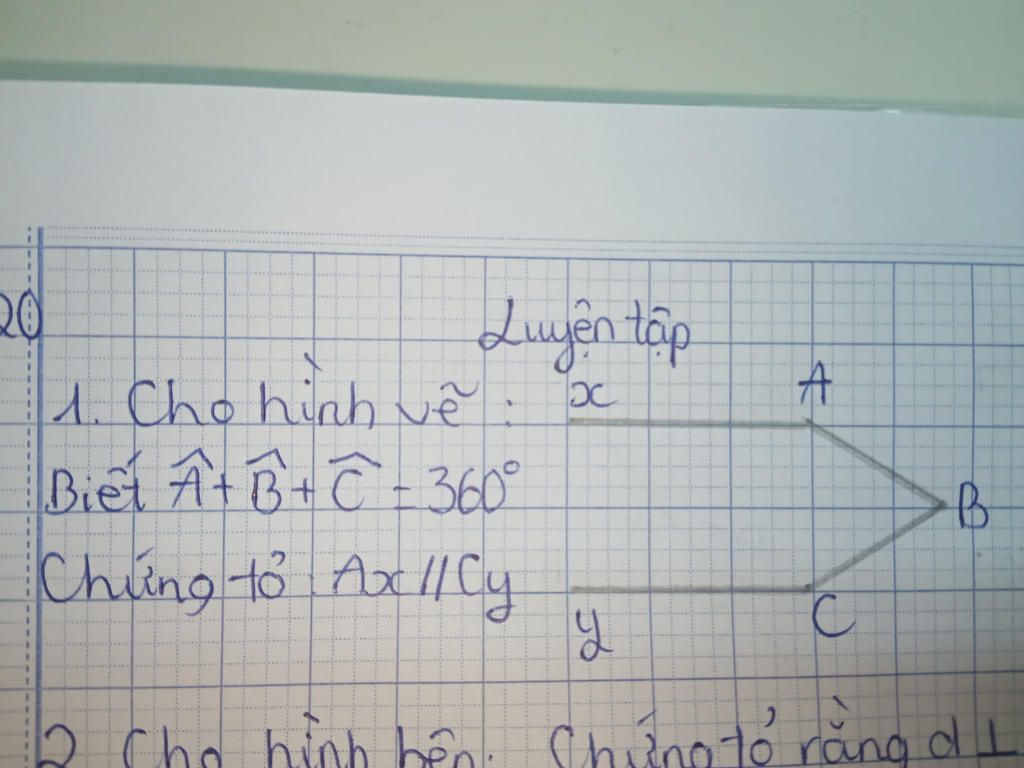 20
Luyện tập
1. Cho hình vẽ :
x A
Biết Â + B̂ + Ĉ = 360°
B
Chứng tỏ Ax // Cy
y C
2 Cho hình bên. Chứng tỏ rằng d ⊥